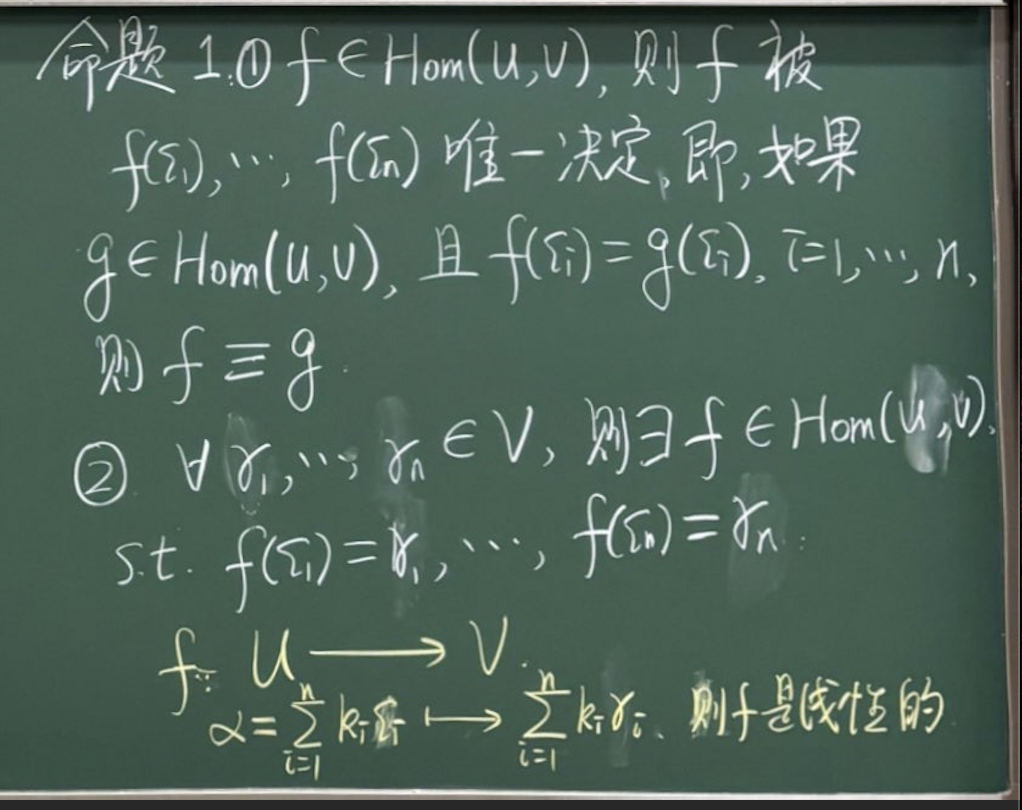 命题 1.① f ∈ Hom(U,V), 则 f 被
f(ξ₁), ..., f(ξₙ) 唯一决定, 即, 如果
g ∈ Hom(U,V), 且 f(ξᵢ) = g(ξᵢ), i=1, ..., n,
则 f ≡ g.
② ∀ γ₁, ..., γₙ ∈ V, 则 ∃ f ∈ Hom(U,V),
s.t. f(ξ₁) = γ₁, ..., f(ξₙ) = γₙ.
f: U ⟶ V.
α = ∑ᵢ₌₁ⁿ kᵢ ξᵢ ⟼ ∑ᵢ₌₁ⁿ kᵢ γᵢ. 则 f 是线性的